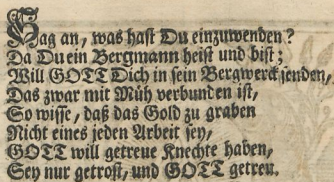 Sag an, was hast Du einzuwenden?
Da Du ein Bergmann heist und bist;
Will GOTT Dich in sein Bergwerck senden,
Das zwar mit Müh verbunden ist,
So wisse, daß das Gold zu graben
Nicht eines jeden Arbeit sey,
GOTT will getreue Knechte haben,
Sey nur getrost, und GOTT getreu.